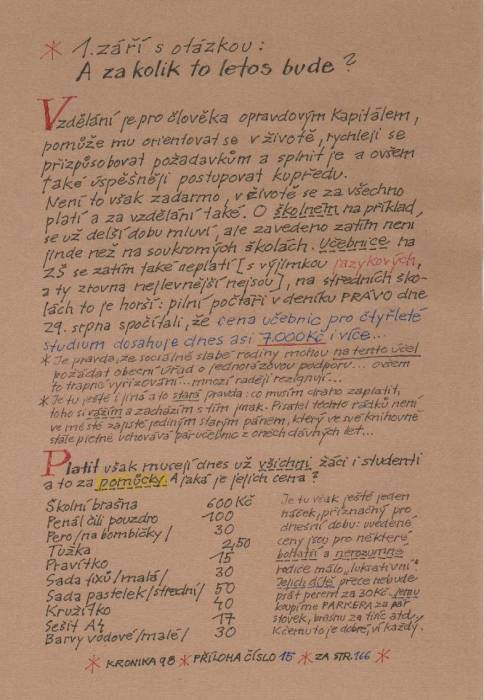 * 1. září s otázkou:
A za kolik to letos bude?
Vzdělání je pro člověka opravdovým kapitálem,
pomůže mu orientovat se v životě, rychleji se
přizpůsobovat požadavkům a splnit je a ovšem
také úspěšněji postupovat kupředu.
Není to však zadarmo, v životě se za všechno
platí a za vzdělání také. O školném na příklad,
se už delší dobu mluví, ale zavedeno zatím není
jinde než na soukromých školách. Učebnice na
ZŠ se zatím také neplatí [s výjimkou jazykových,
a ty zrovna nejlevnější nejsou], na středních ško-
lách to je horší: pilní počtáři v deníku PRÁVO dne
29. srpna spočítali, že cena učebnic pro čtyřleté
studium dosahuje dnes asi 7.000 Kč i více...
* Je pravda, že sociálně slabé rodiny mohou na tento účel
požádat obecní úřad o jednorázovou podporu... ovšem
to trapné vyřizování... mnozí raději rezignují...
* Je tu ještě i jiná a to stará pravda: co musím draho zaplatit,
toho si vážím a zacházím s tím jinak. Pisatel těchto řádků není
ve městě zajisté jediným starým pánem, který ve své knihovně
stále pietně uchovává pár učebnic z oněch dávných let...
Platit však musejí dnes už všichni žáci i studenti
a to za pomůcky. A jaká je jejich cena?
Školní brašna 600 Kč
Penál čili pouzdro 100
Pero /na bombičky/ 30
Tužka 2,50
Pravítko 15
Sada fixů /malá/ 30
Sada pastelek /střední/ 50
Kružítko 40
Sešit A4 17
Barvy vodové /malé/ 30
Je tu však ještě jeden
háček, příznačný pro
dnešní dobu: uvedené
ceny jsou pro některé
bohaté a nerozumné
rodiče málo „lukrativní“.
Jejich dítě přece nebude
psát perem za 30 Kč. Jemu
koupíme PARKERA za pár
stovek, brašnu za tisíc atd.
K čemu to je dobré, ví každý.
* KRONIKA 98 * PŘÍLOHA ČÍSLO 15 * ZA STR. 166 *